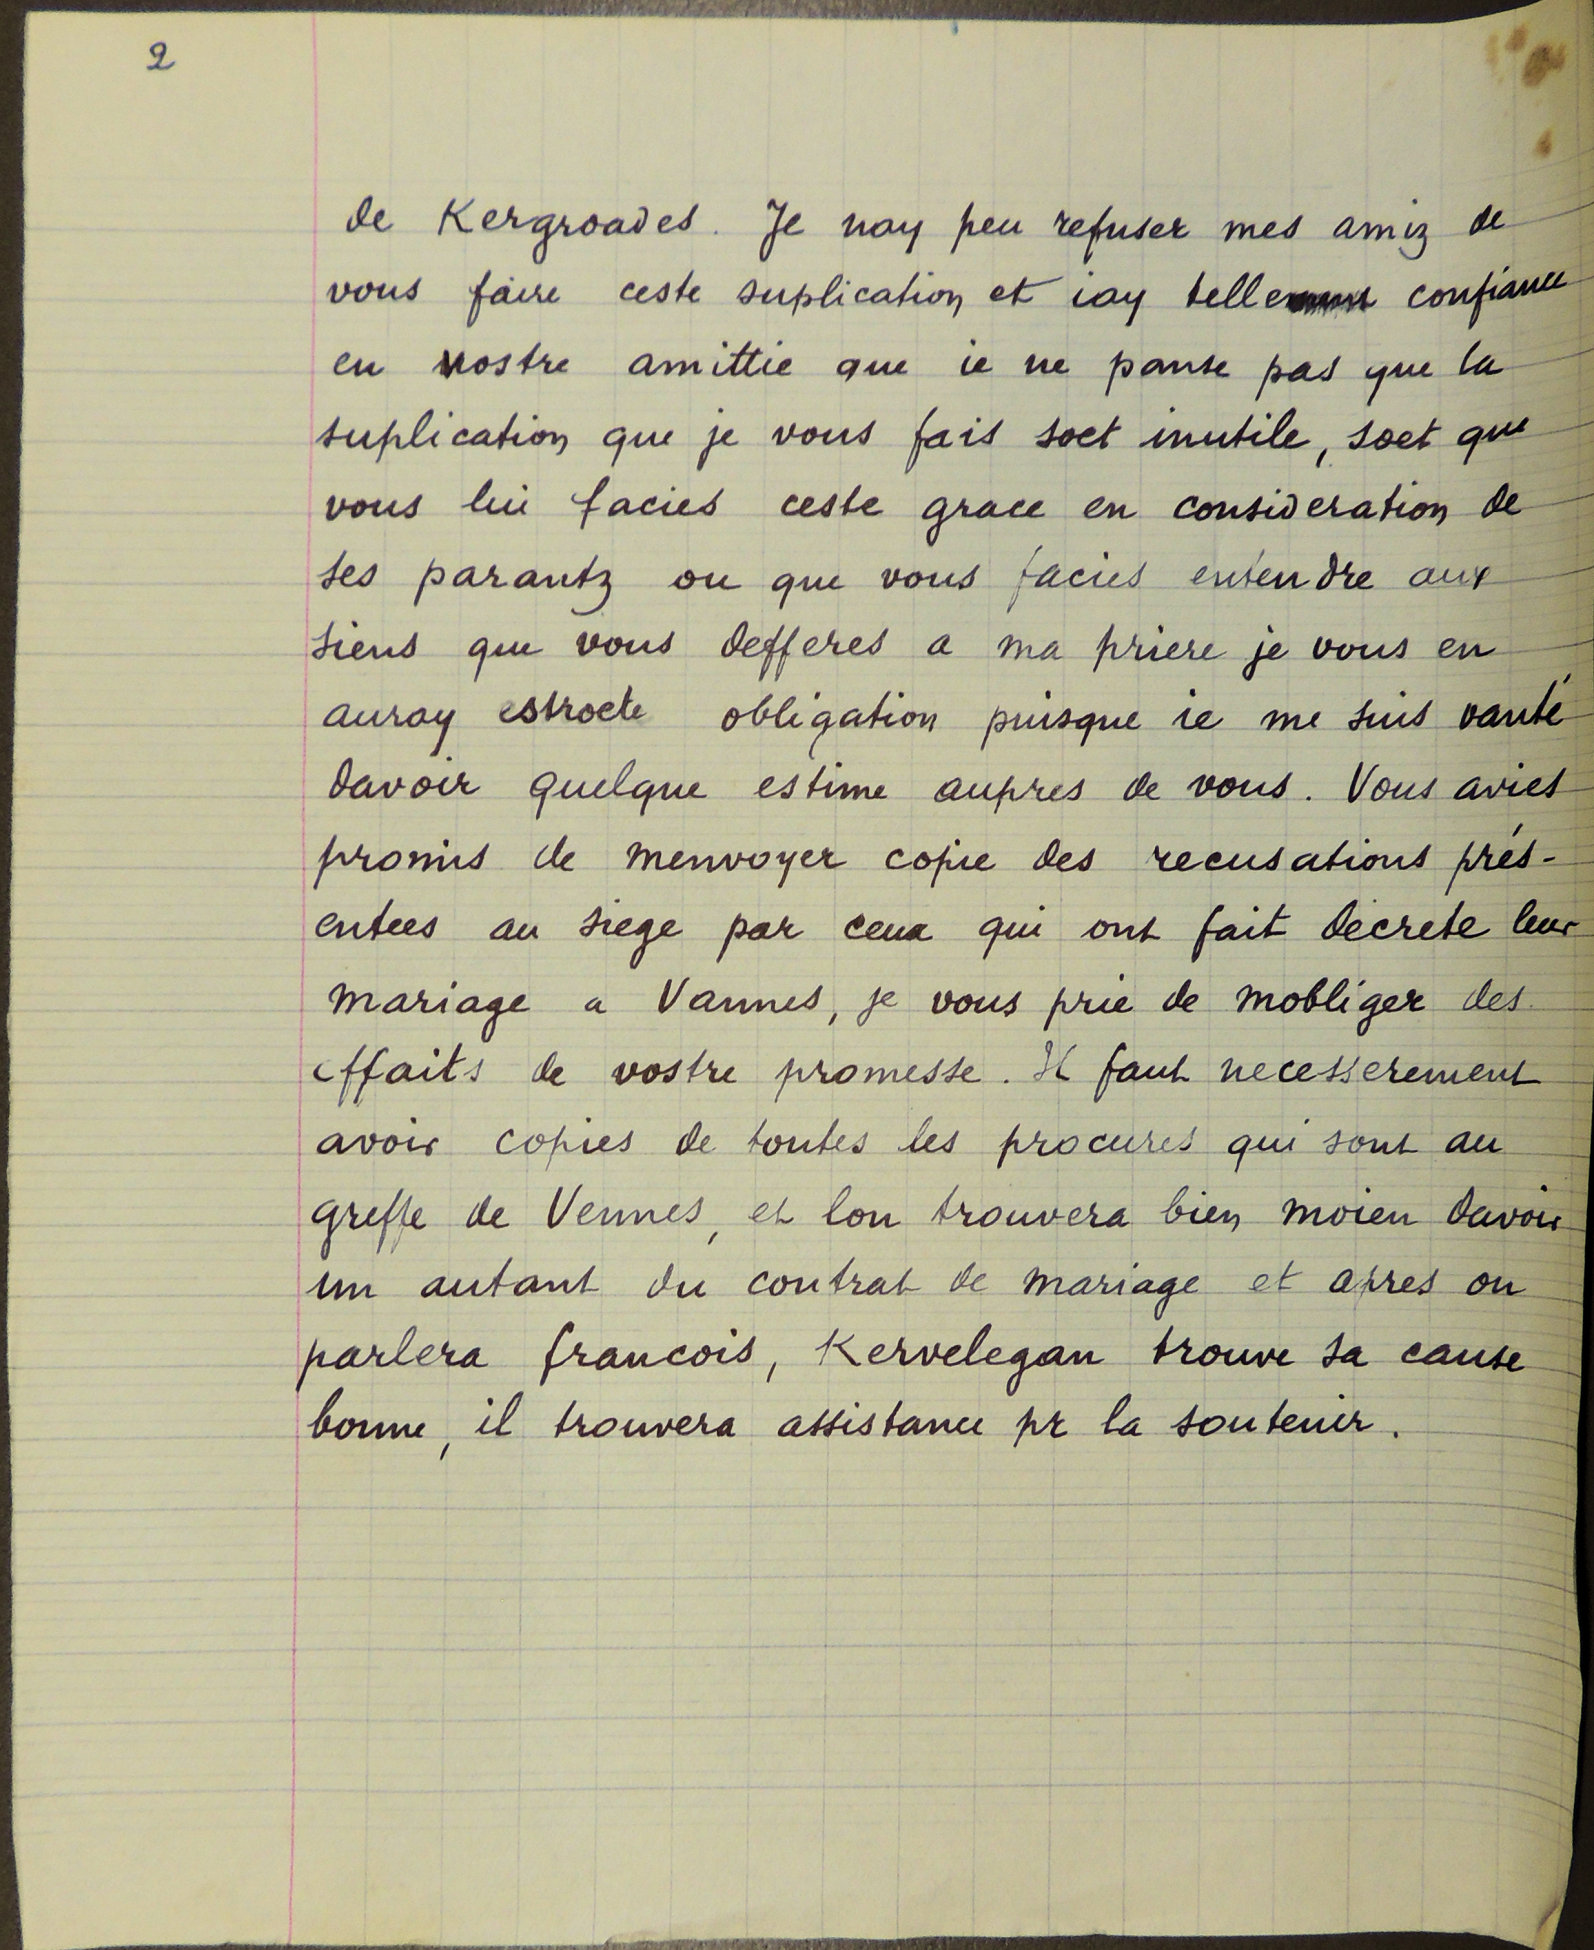 2
de Kergroades. Je nay peu refuser mes amiz de
vous faire ceste suplication et iay telle confiance
en vostre amittie que ie ne panse pas que la
suplication que je vous fais soet inutile, soet que
vous lui facies ceste grace en consideration de
ses parantz ou que vous facies entendre aux
siens que vous defferes a ma priere je vous en
auray estroete obligation puisque ie me suis vanté
davoir quelque estime aupres de vous. Vous avies
promis de menvoyer copie des recusations prés-
entees au siege par ceux qui ont fait decrete leur
mariage a Vannes, je vous prie de mobliger des
effaits de vostre promesse. Il faut necesserement
avoir copies de toutes les procures qui sont au
greffe de Vennes, et lon trouvera bien moien davoir
un autant du contrat de mariage et apres on
parlera francois, Kervelegan trouve sa cause
bonne, il trouvera assistance pr la soutenir.